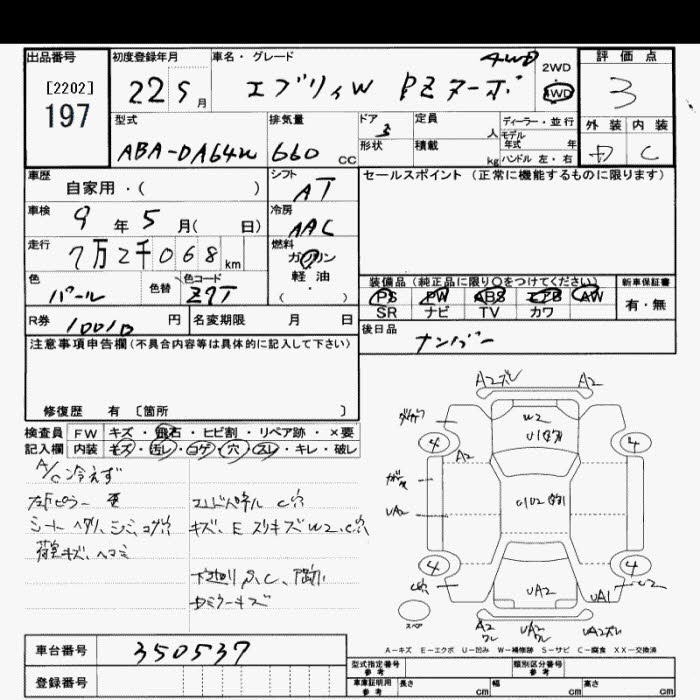 出品番号
[2202]
197
初度登録年月
22 5 月
車名・グレード
エブリィW PZターボ 4WD
2WD
4WD
評価点
3
外装 内装
D C
型式
ABA-DA64W
排気量
660 cc
ドア
形状
定員 人
積載 kg
ディーラー・並行
モデル年式 年
ハンドル 左・右
車歴
自家用・( )
シフト
AT
セールスポイント (正常に機能するものに限ります)
車検
9 年 5 月( 日)
冷房
AAC
走行
7万2千068 km
燃料
ガソリン
軽油
( )
色
パール
色替
色コード
Z7T
装備品 (純正品に限り○をつけてください)
PS PW ABS エアB AW
SR ナビ TV カワ
新車保証書
有・無
R券
円
名変期限 月 日
後日品
ナンバー
注意事項申告欄(不具合内容等は具体的に記入して下さい)
修復歴 有 〔箇所 〕
検査員記入欄
FW キズ・飛石・ヒビ割・リペア跡・×要
内装 キズ・汚レ・コゲ・穴・スレ・キレ・破レ
A/C冷えず
左Fピラー
シート ヘタリ、シミ、コゲ穴
荷室キズ、ヘコミ
キズ、E スリキズ W2、C穴
下廻りS、C、
Dミラーキズ
A2ズレ A2
W2
U1
4 4
A2
UA2
4 4
UA2 UA1
スペア
A2 UA2 UA2ズレ
A-キズ E-エクボ U-凹み W-補修跡 S-サビ C-腐食 XX-交換済
車台番号
350537
登録番号
型式指定番号
参考
類別区分番号
参考
車庫証明用
参考
長さ cm
幅 cm
高さ cm